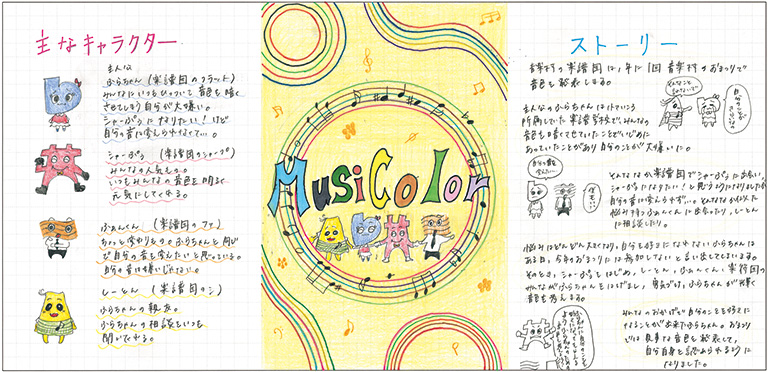 主なキャラクター
主人公
ふらちゃん(楽譜国のフラット)
みんなにいつもひっついて音色を暗く
させてしまう自分が大嫌い。
シャーぷるになりたい!けど
自分の音は変えられなくて…。
シャーぷる(楽譜国のシャープ)
みんなの人気もの。
いつもみんなの音色を明るく
元気にしてくれる。
ふぁんくん(楽譜国のファ)
ちょっと変わりもの。ふらちゃんと同じ
で自分の音を変えたいと思っている。
自分の音は嫌いじゃない。
しーとん(楽譜国のシ)
ふらちゃんの親友。
ふらちゃんの相談をいつも
聞いてくれる。
MusiColor
ストーリー
音楽村の楽譜国は1年に1回音楽村のおまつりで
音色を発表しまる。
主人公のふらちゃんは
所属していた楽譜学校でみんなの
音色を暗くさせていたことでいじめに
あっていたことがあり自分のことが大嫌いだ。
そんななか楽譜国でシャーぷるに出会い、
シャーぷるになりたい!と思うようになりましたが
自分の音は変えられず…。そんななか似た
悩みを持つふぁんくんに出会ったり、しーとん
に相談したり。
悩みはどんどん大きくなり、自分を好きになれないふらちゃんは
ある日、今年のおまつりには参加しないと言い出してしまいまる。
そのとき、シャーぷるをはじめ、しーとん、ふぁんくん、楽譜国の
みんながふらちゃんをはげまし、勇気づけ、ふらちゃんが輝く
音色を考えまる。
みんなのおかげで自分のことを好きに
なることが出来たふらちゃん。おまつり
では見事な音色を発表して、
自分自身を認められるように
なりました。